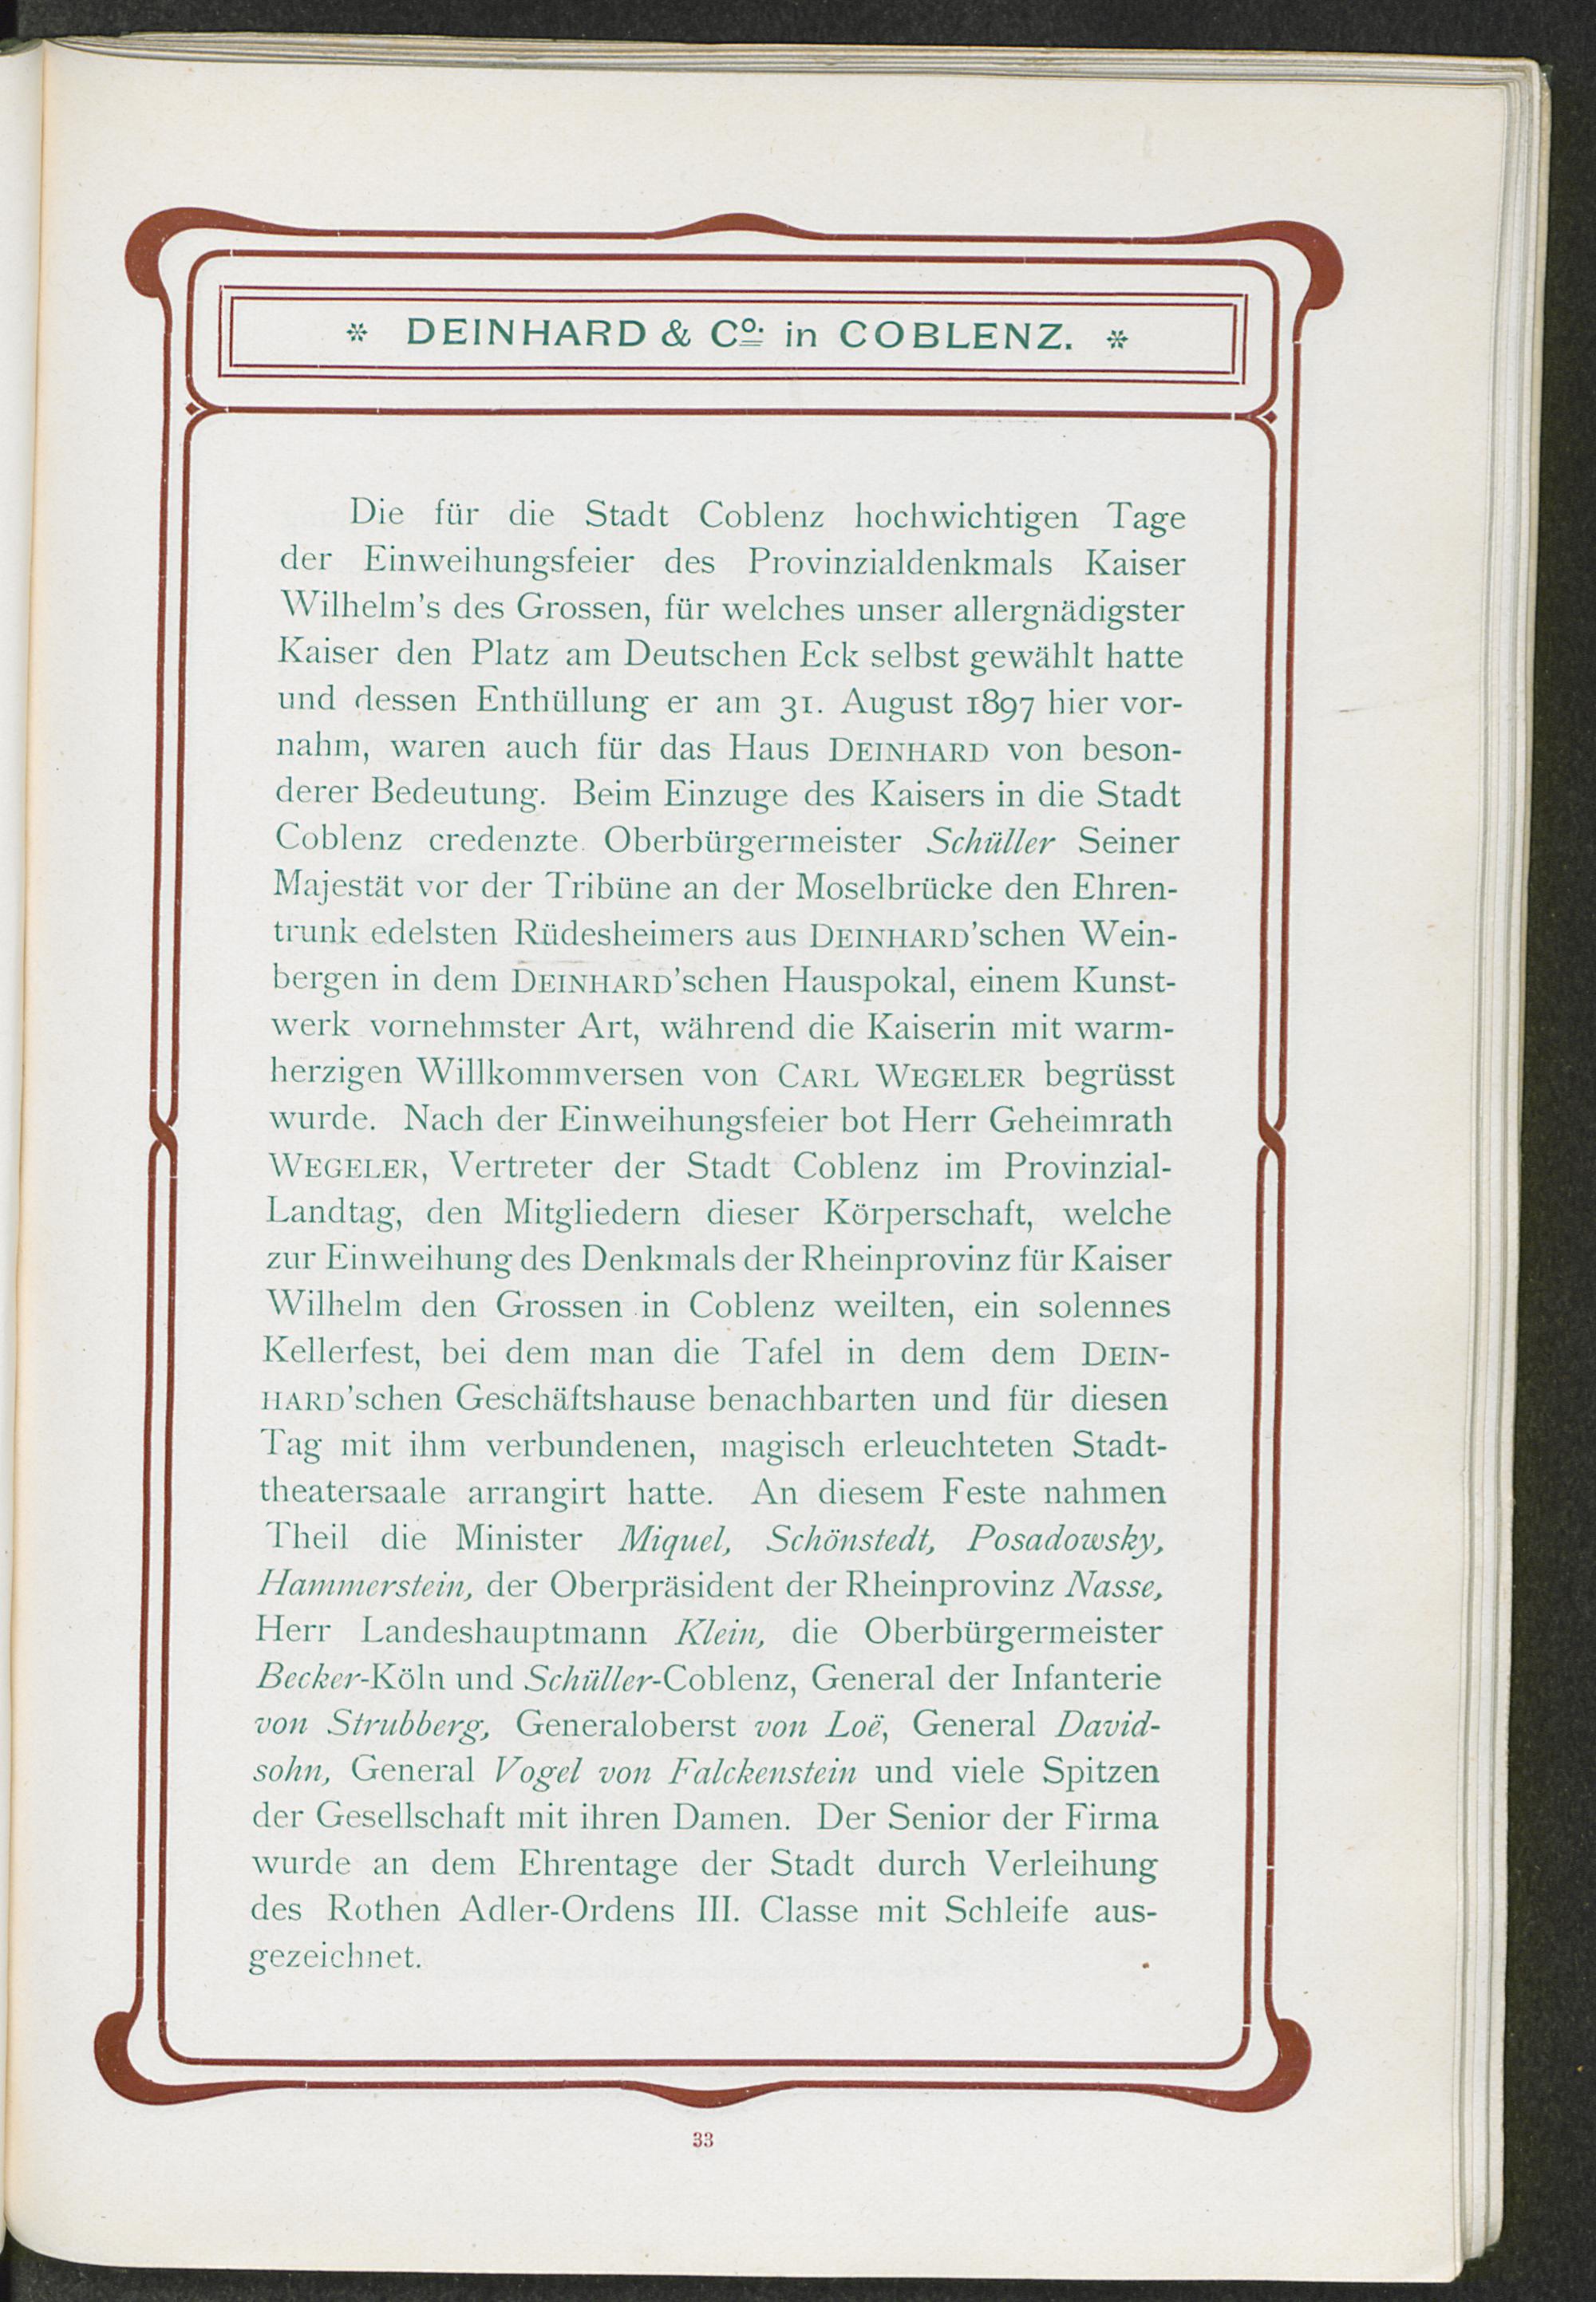 * DEINHARD & Co. in COBLENZ. *
Die für die Stadt Coblenz hochwichtigen Tage
der Einweihungsfeier des Provinzialdenkmals Kaiser
Wilhelm's des Grossen, für welches unser allergnädigster
Kaiser den Platz am Deutschen Eck selbst gewählt hatte
und dessen Enthüllung er am 31. August 1897 hier vor-
nahm, waren auch für das Haus DEINHARD von beson-
derer Bedeutung. Beim Einzuge des Kaisers in die Stadt
Coblenz credenzte Oberbürgermeister Schüller Seiner
Majestät vor der Tribüne an der Moselbrücke den Ehren-
trunk edelsten Rüdesheimers aus DEINHARD'schen Wein-
bergen in dem DEINHARD'schen Hauspokal, einem Kunst-
werk vornehmster Art, während die Kaiserin mit warm-
herzigen Willkommversen von CARL WEGELER begrüsst
wurde. Nach der Einweihungsfeier bot Herr Geheimrath
WEGELER, Vertreter der Stadt Coblenz im Provinzial-
Landtag, den Mitgliedern dieser Körperschaft, welche
zur Einweihung des Denkmals der Rheinprovinz für Kaiser
Wilhelm den Grossen in Coblenz weilten, ein solennes
Kellerfest, bei dem man die Tafel in dem dem DEIN-
HARD'schen Geschäftshause benachbarten und für diesen
Tag mit ihm verbundenen, magisch erleuchteten Stadt-
theatersaale arrangirt hatte. An diesem Feste nahmen
Theil die Minister Miquel, Schönstedt, Posadowsky,
Hammerstein, der Oberpräsident der Rheinprovinz Nasse,
Herr Landeshauptmann Klein, die Oberbürgermeister
Becker-Köln und Schüller-Coblenz, General der Infanterie
von Strubberg, Generaloberst von Loë, General David-
sohn, General Vogel von Falckenstein und viele Spitzen
der Gesellschaft mit ihren Damen. Der Senior der Firma
wurde an dem Ehrentage der Stadt durch Verleihung
des Rothen Adler-Ordens III. Classe mit Schleife aus-
gezeichnet.
33